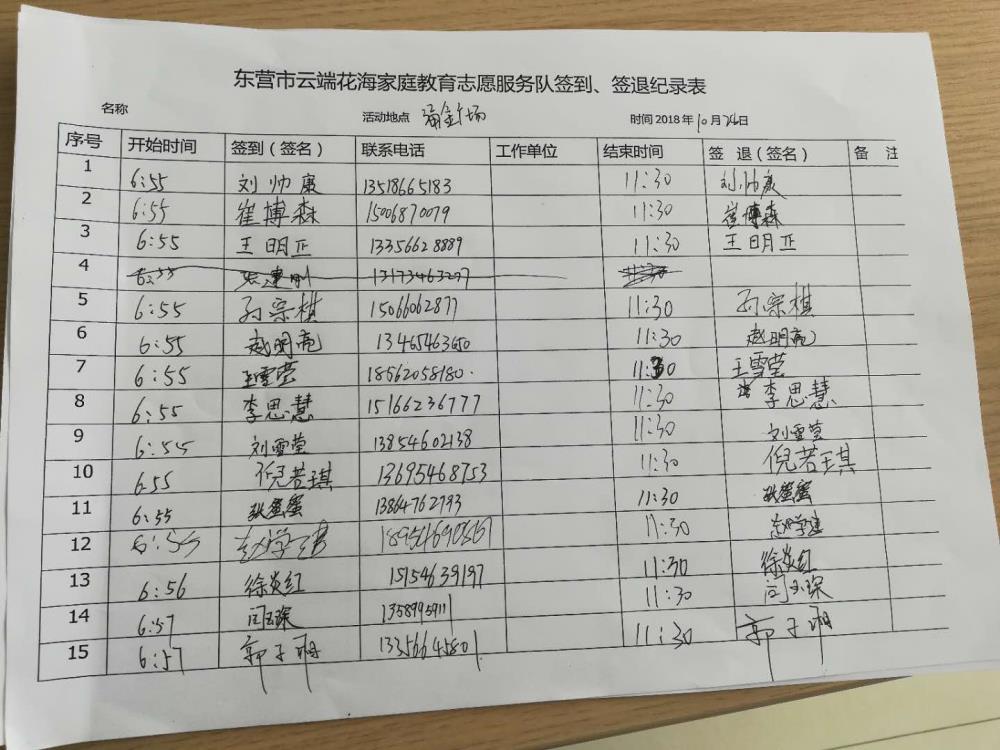 东营市云端花海家庭教育志愿服务队签到、签退纪录表
名称 活动地点 时间 2018 年 10 月 26 日
序号 开始时间 签到(签名) 联系电话 工作单位 结束时间 签 退(签名) 备 注
1 6:55 刘帅康 13518665183 11:30 刘帅康
2 6:55 崔博森 15006870079 11:30 崔博森
3 6:55 王明正 13356628889 11:30 王明正
4 13173463277
5 6:55 孙宗棋 15066062877 11:30 孙宗棋
6 6:55 赵明亮 13465463650 11:30 赵明亮
7 6:55 王雪莹 18562058180 11:30 王雪莹
8 6:55 李思慧 15166236777 11:30 李思慧
9 6:55 刘雪莹 13854602138 11:30 刘雪莹
10 6:55 倪若琪 13695468753 11:30 倪若琪
11 6:55 张蜜蜜 13864762793 11:30 张蜜蜜
12 6:55 11:30
13 6:56 徐炎红 15154639197 11:30 徐炎红
14 6:57 闫玉琛 1358995911 11:30 闫玉琛
15 6:57 郭子雨 13356645801 11:30 郭子雨